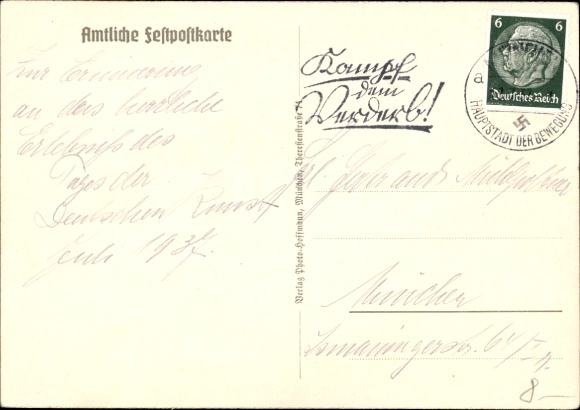 Amtliche Festpostkarte
Zur Erinnerung
an das herrliche
Erlebniß des
Tages der
Deutschen Kunst
Juli 1937.
Verlag Photo-Hoffmann, München, Theresienstraße 74
Kampf
dem
Verderb!
6 6
Deutsches Reich
MÜNCHEN
a
HAUPTSTADT DER BEWEGUNG
München
Ismaningerstr. 64/I r.
8—